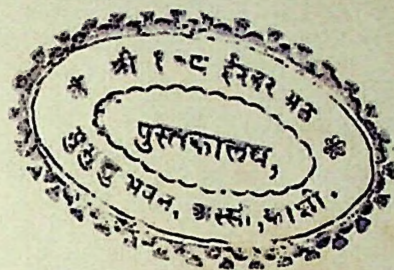 * श्री १-८ ईश्वर मठ *
पुस्तकालय,
मुमुक्षु भवन, अस्सी, काशी.